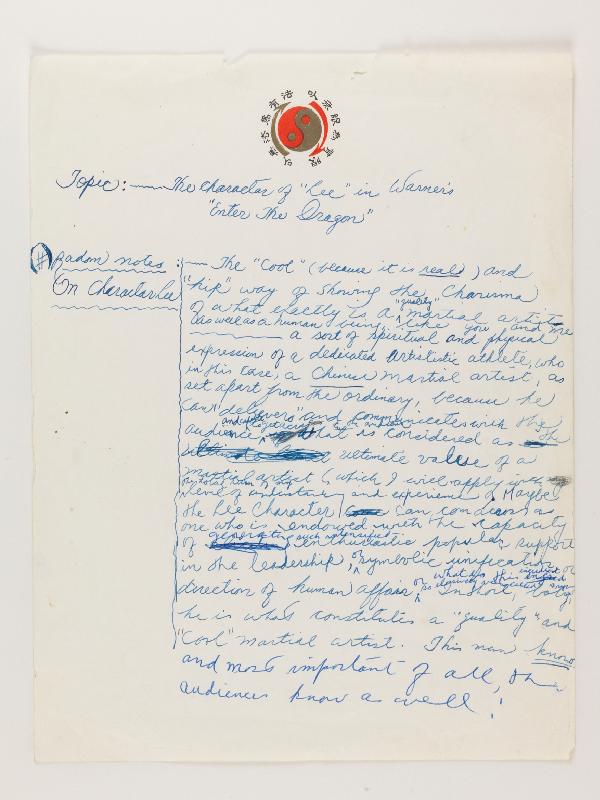 以無限為有限
以無法為有法
Topic:—The character of "Lee" in Warner's
"Enter The Dragon"
# Radom notes :— The "Cool" (because it is real!) and
On Character Lee "hip" way of showing the Charisma
of what exactly is a "quality" martial artist
(as well as a human being, like you and me
— a sort of spiritual and physical
expression of a dedicated artistic athlete, who
in this case, a Chinese martial artist, as
set apart from the ordinary, because he
can "delivers" and communicates with the
audience what is considered as the
ultimate value of a
martial artist (which I will apply with
level of understanding and experience). Maybe
the Lee Character can condense as
one who is endowed with the capacity
of generating such intensified enthusiastic popular support
in the leadership, or symbolic unification or
direction of human affair, In short,
he is what constitutes a "quality" and
"Cool" martial artist. This man know
and most important of all, the
audiences know as well!